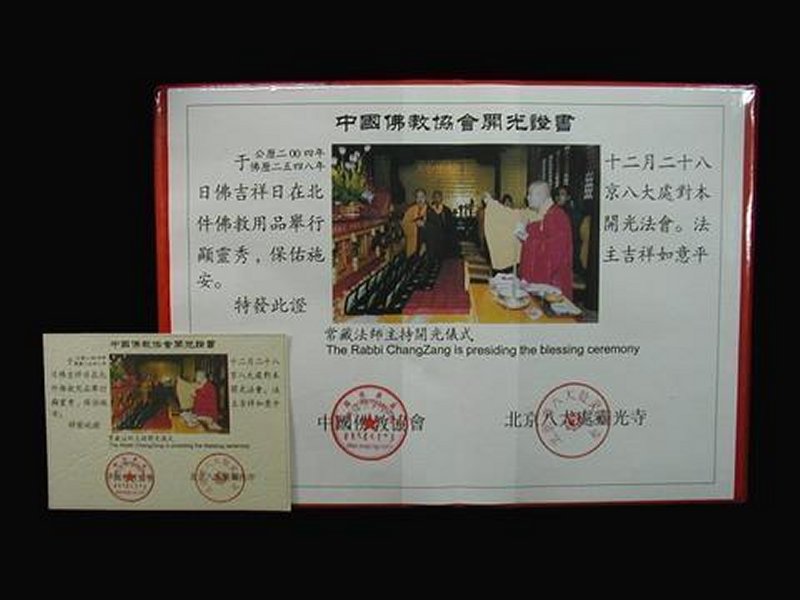 中國佛教協會開光證書
于 公歷二00四年 十二月二十八
佛歷二五四八年
日佛吉祥日在北 京八大處對本
件佛教用品舉行 開光法會。法
顯靈秀，保佑施 主吉祥如意平
安。
特發此證
常藏法師主持開光儀式
The Rabbi ChangZang is presiding the blessing ceremony
中國佛教協會 北京八大處靈光寺
中國佛教協會開光證書
于 十二月二十八
日佛吉祥日在北 京八大處對本
件佛教用品舉行 開光法會。法
顯靈秀，保佑施 主吉祥如意平
安。
特發此證
常藏法師主持開光儀式
The Rabbi ChangZang is presiding the blessing ceremony
中國佛教協會 北京八大處靈光寺